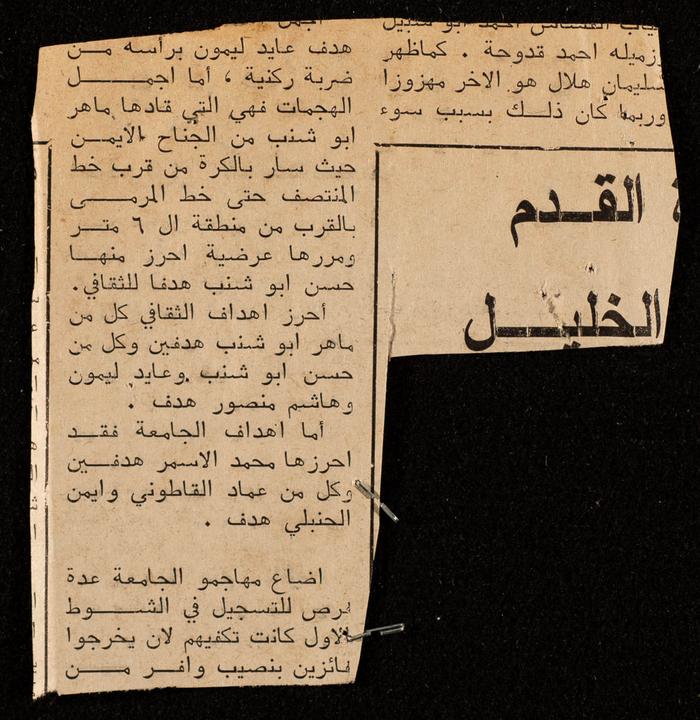 غياب القشاش احمد ابو شنبيل
وزميله احمد قدوحة . كماظهر
سليمان هلال هو الاخر مهزوزا
وربما كان ذلك بسبب سوء
هدف عايد ليمون برأسه من
ضربة ركنية ، أما اجمل
الهجمات فهي التي قادها ماهر
ابو شنب من الجناح الايمن
حيث سار بالكرة من قرب خط
المنتصف حتى خط المرمى
بالقرب من منطقة ال ٦ متر
ومررها عرضية احرز منها
حسن ابو شنب هدفا للثقافي.
أحرز اهداف الثقافي كل من
ماهر ابو شنب هدفين وكل من
حسن ابو شنب وعايد ليمون
وهاشم منصور هدف .
أما اهداف الجامعة فقد
احرزها محمد الاسمر هدفين
وكل من عماد القاطوني وايمن
الحنبلي هدف .
اضاع مهاجمو الجامعة عدة
فرص للتسجيل في الشوط
الاول كانت تكفيهم لان يخرجوا
فائزين بنصيب وافر من
القدم
الخليل